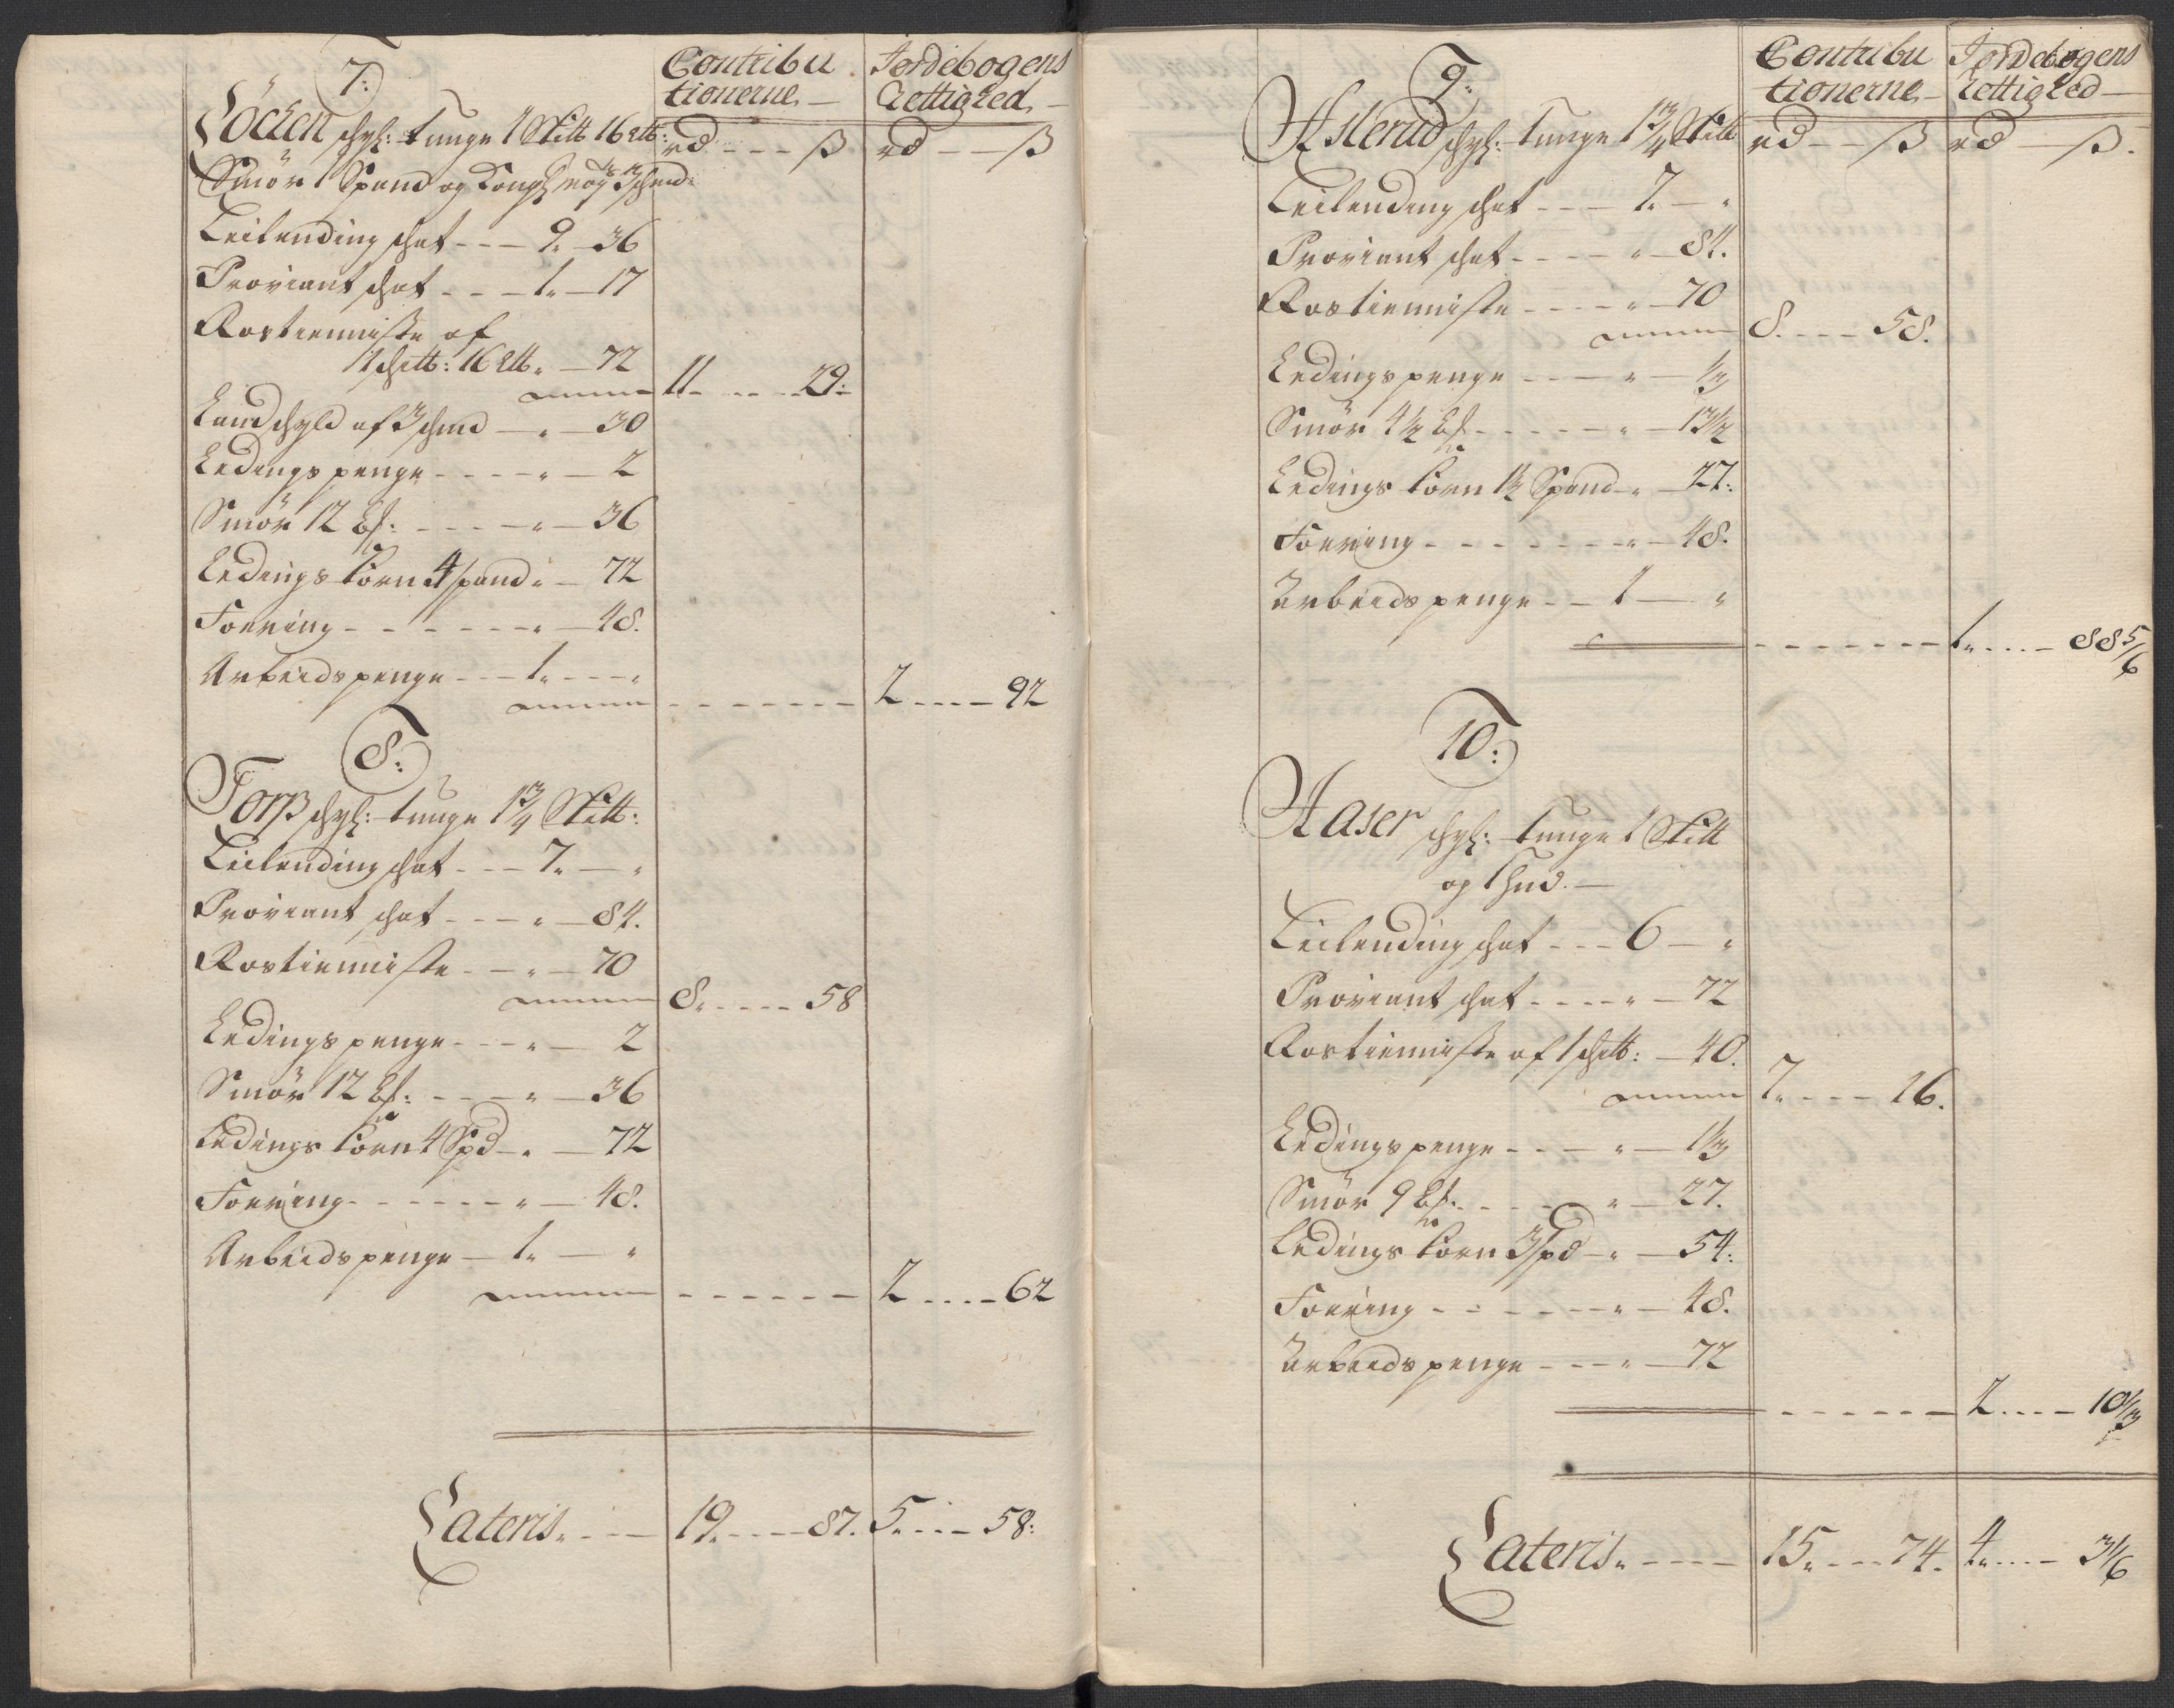 Contribu
tionerne
Jordebogens
Rettighed
7:
Löcken schyl: tunge 1 Skilt 16 ℔:
rd ß rd ß
Smör 1 Spand og
Leilending schat 9 36
Proviant schat 1 17
Rostienniste af
1 schilt: 16 ℔ 72
11 29:
Landschyld af 30
Ledingspenge 2
Smör 12 36
Ledings korn 4 spand 72
Foering 48.
Arbeidspenge 1
2 92
8:
Torp schyl: tunge 1¾ Skilt:
Leilending schat 7
Proviant schat 84.
Rostienniste 70
8 58
Ledingspenge 2
Smör 12 36
Ledings korn 4 Spd 72
Foering 48.
Arbeidspenge 1
2 62
Lateris 19 87. 5 58:
Contribu
tionerne
Jordebogens
Rettighed
9:
Asterud schyl: tunge 1¾ Skilt
rd ß rd ß.
Leilending schat 7
Proviant schat 84.
Rostienniste 70
8 58.
Ledingspenge ⅓
Smör 4½ 13½
Ledings korn 1½ Spand 27:
Foering 48.
Arbeidspenge 1
1 88 5/6
10:
Aaser schyl: tunge 1 Skilt
og 1 hud.
Leilending schat 6
Proviant schat 72
Rostienniste af 1 schilt: 40.
7 16.
Ledingspenge 1⅓
Smör 9 27.
Ledings korn 3 spd 54:
Foering 48.
Arbeidspenge 72
2 10⅓
Lateris 15 74. 4 3 1/6